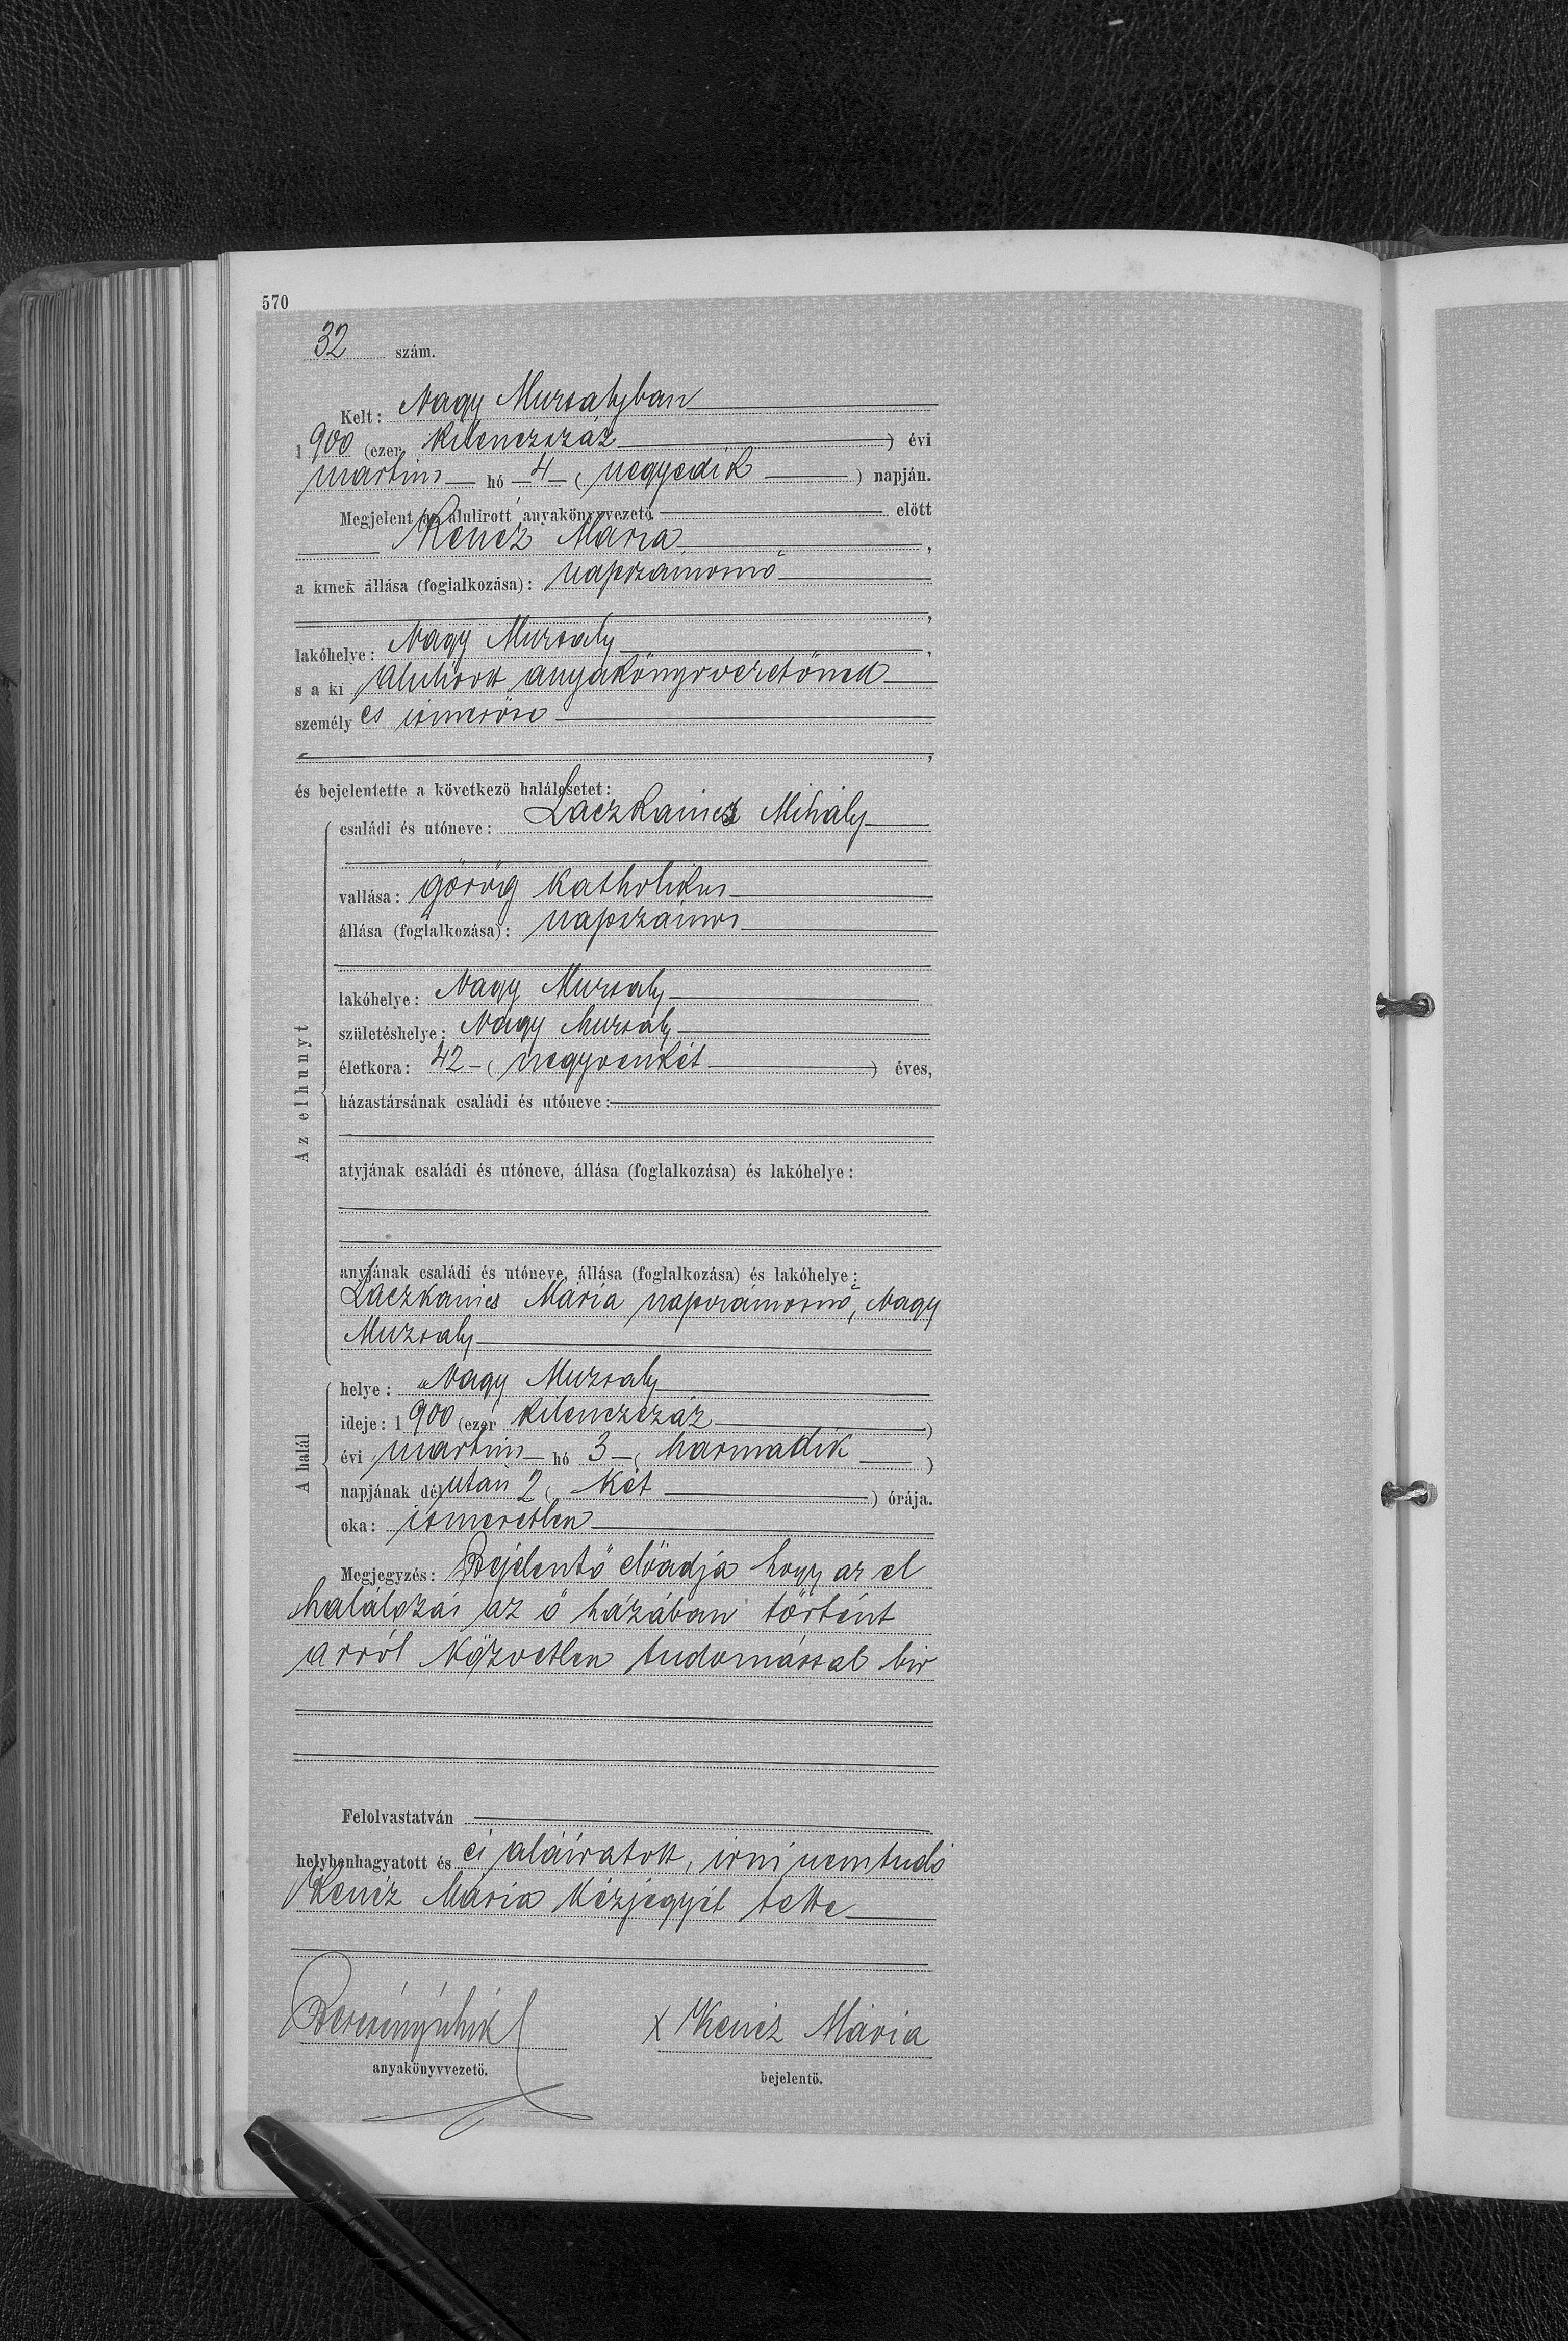 570
32 szám.
Kelt: Nagy Muzsalyban
1900 (ezer kilenczszáz) évi
martius hó 4 (negyedik) napján.
Megjelent az alulirott anyakönyvvezető előtt
Kenéz Mária,
a kinek állása (foglalkozása): napszámosnő
,
lakóhelye: Nagy Muzsaly,
s a ki alulirott anyakönyvvezetőnek
személyes ismerőse
,
és bejelentette a következő halálesetet:
Az elhunyt
családi és utóneve: Laczkanics Mihály
vallása: görög katholikus
állása (foglalkozása): napszámos
lakóhelye: Nagy Muzsaly
születéshelye: Nagy Muzsaly
életkora: 42 (negyvenkét) éves,
házastársának családi és utóneve:
atyjának családi és utóneve, állása (foglalkozása) és lakóhelye:
anyjának családi és utóneve, állása (foglalkozása) és lakóhelye:
Laczkanics Mária napszámosnő, Nagy
Muzsaly
A halál
helye: Nagy Muzsaly
ideje: 1900 (ezer kilenczszáz)
évi martius hó 3 (harmadik)
napjának délután 2 (két) órája.
oka: ismeretlen
Megjegyzés: Bejelentő előadja hogy az el
halálozás az ő házában történt
arról közvetlen tudomással bir
Felolvastatván
helybenhagyatott és ei aláiratott, irni nemtudó
Kenéz Mária kézjegyét tette
x Kenéz Mária
anyakönyvvezető.
bejelentő.